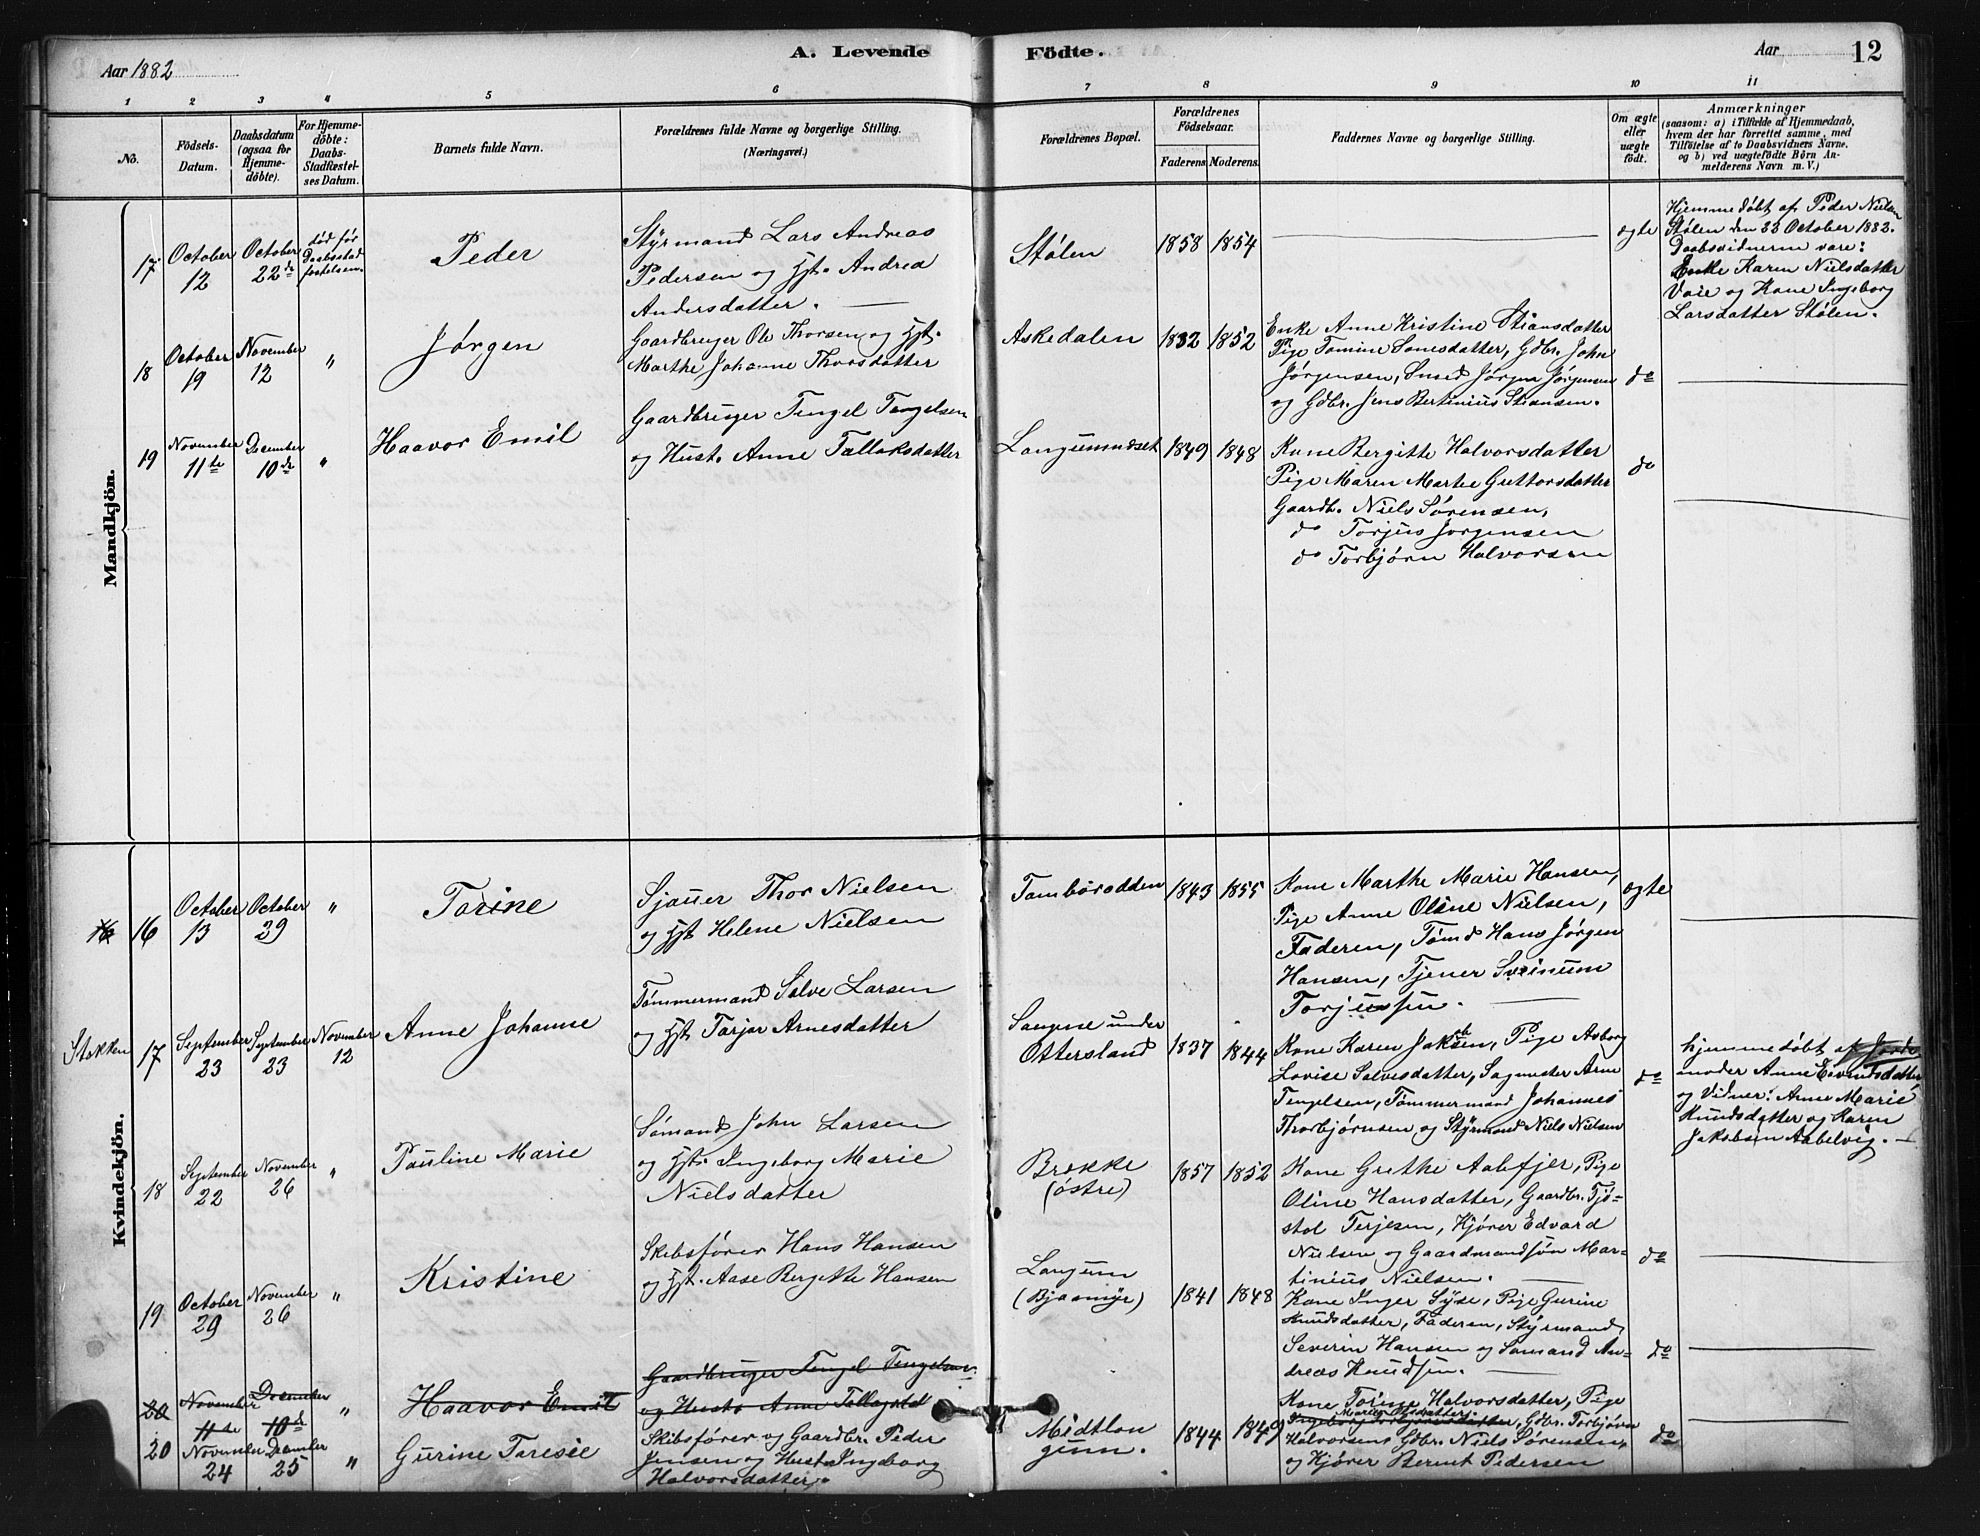 Aar 1882
A. Levende
Födte.
Aar
12
1 2 3 4 5 6 7 8 9 10 11
No.
Födsels-
Datum.
Daabsdatum
(ogsaa for
Hjemme-
döbte).
For Hjemme-
döbte:
Daabs-
Stadfæstel-
ses Datum.
Barnets fulde Navn.
Forældrenes fulde Navne og borgerlige Stilling.
(Næringsvei.)
Forældrenes Bopæl.
Forældrenes
Födselsaar.
Faderens. Moderens.
Faddernes Navne og borgerlige Stilling.
Om ægte
eller
uægte
födt.
Anmærkninger
(saasom: a) i Tilfælde af Hjemmedaab,
hvem der har forrettet samme, med
Tilföielse af to Daabsvidners Navne,
og b) ved uægtefödte Börn An-
melderens Navn m. V.)
Mandkjön.
17
October
12
October
22de
død før
Daabsstad
festelsen.
Peder
Styrmand Lars Andreas
Pedersen og Hst. Andrea
Andersdatter.
Stølen
1858 1854
ægte
Hjemmedøbt af Peder Nielsen
Stølen den 22 October 1882.
Daabsvidnerne vare:
Enke Karen Nielsdatter
Vaie og Kone Ingeborg
Larsdatter Stølen.
18
October
19
November
12
"
Jørgen
Gaardbruger Ole Thorsen og Hst.
Marthe Johanne Thorsdatter
Askedalen
1832 1852
Enke Anne Kristine Stiansdatter
Pige Tomine Sonesdatter, Gdbr. John
Jørgensen, Smed Jørgen Jørgensen
og Gdbr. Jens Bertinius Stiansen.
do
19
November
11te
December
10de
"
Haavor Emil
Gaardbruger Tengel Tengelsen
og Hust. Anne Tallaksdatter
Langumndset
1849 1848
Kone Bergitte Halvorsdatter
Pige Maren Marte Guttorsdatter
Gaardb. Niels Sørensen,
do Torjus Jorgensen
do Torbjørn Halvorsen
do
Kvindekjön.
16
October
13
October
29
"
Torine
Sjauer Thor Nielsen
og Hst Helene Nielsen
Tambørodden
1843 1855
Kone Marthe Marie Hansen,
Pige Anne Oline Nielsen,
Faderen, Tømd Hans Jørgen
Hansen, Tjener Sveinum
Torjussen.
ægte
Stokken
17
September
23
September
23
November
12
Anne Johanne
Tømmermand Salve Larsen
og Hst Torjor Arnesdatter
Sangene under
Ottersland
1837 1844
Kone Karen Jakobsen, Pige Aaborg
Lovise Salvesdatter, Sagmester Arne
Tengelsen, Tømmermand Johannes
Thorbjørnsen og Styrmand Niels Nielsen
do
hjemmedøbt af Jorde
moder Anne Eivindsdatter
og Vidner: Anne Marie
Knudsdatter og Karen
Jakobsen Aabelvig.
18
September
22
November
26
"
Pauline Marie
Sømand John Larsen
og Hst. Ingeborg Marie
Nielsdatter
Brække
(østre)
1857 1852
Kone Grethe Aabfjer, Pige
Oline Hansdatter, Gaardbr. Tjø-
stol Terjesen, Kjører Edvard
Nielsen og Gaardmandsøn Mar-
tinius Nielsen.
do
19
October
29
November
26
"
Kristine
Skibsfører Hans Hansen
og Hst. Aase Bergitte Hansen
Langum
(Bjaamyr)
1841 1848
Kone Inger Syse, Pige Gurine
Knudsdatter, Faderen, Styrmand
Severin Hansen og Sømand An-
dreas Knudsen.
do
20
November
11te
December
10de
"
Haavor Emil
Gaardbruger Tengel Tengelsen
og Husto Anne Tallagstd
20
November
24
December
25
"
Gurine Taresie
Skibsfører og Gaardbr. Peder
Jensen og Hust Ingeborg
Halvorsdatter.
Midtlan
gum.
1844 1849
Kone Torine Halvorsdatter, Pige
Maren Olsdatter
Halvorsen, Gdbr. Niels Sørensen,
Gdbr. Torbjørn
og Kjører Bernt Pedersen
do